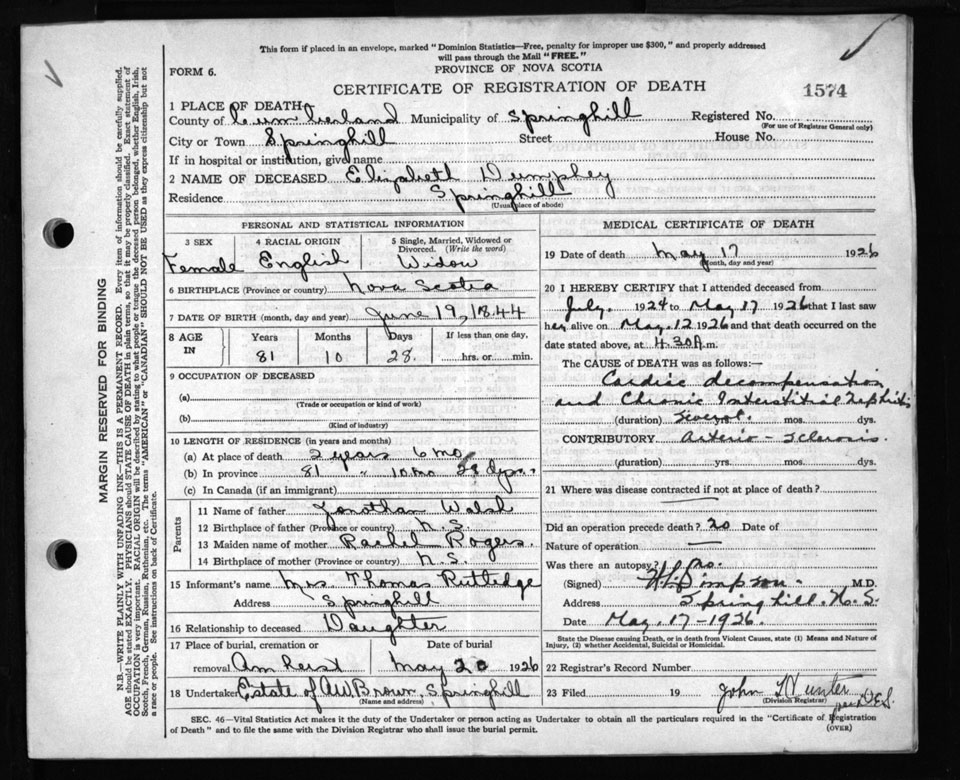 This form if placed in an envelope, marked "Dominion Statistics—Free, penalty for improper use $300," and properly addressed
will pass through the Mail "FREE."
FORM 6.
PROVINCE OF NOVA SCOTIA
CERTIFICATE OF REGISTRATION OF DEATH
1574
1 PLACE OF DEATH
County of Cumberland Municipality of Springhill Registered No.
(For use of Registrar General only)
City or Town Springhill Street House No.
If in hospital or institution, give name
2 NAME OF DECEASED Elizabeth Dumphey
Residence Springhill
(Usual place of abode)
PERSONAL AND STATISTICAL INFORMATION
3 SEX 4 RACIAL ORIGIN 5 Single, Married, Widowed or Divorced. (Write the word)
Female English Widow
6 BIRTHPLACE (Province or country) Nova Scotia
7 DATE OF BIRTH (month, day and year) June 19, 1844
8 AGE IN Years Months Days If less than one day,
81 10 28 hrs. or min.
9 OCCUPATION OF DECEASED
(a)
(Trade or occupation or kind of work)
(b)
(Kind of industry)
10 LENGTH OF RESIDENCE (in years and months)
(a) At place of death 2 years 6 mo
(b) In province 81 " 10 mo 28 dys.
(c) In Canada (if an immigrant)
Parents
11 Name of father Jonothan Walsh
12 Birthplace of father (Province or country) N.S.
13 Maiden name of mother Rachel Rogers
14 Birthplace of mother (Province or country) N.S.
15 Informant's name Mrs. Thomas Ruttedge
Address Springhill
16 Relationship to deceased Daughter
17 Place of burial, cremation or removal Amherst Date of burial May 20 1926
18 Undertaker Estate of A.W. Brown, Springhill
(Name and address)
MEDICAL CERTIFICATE OF DEATH
19 Date of death May 17 1926
(Month, day and year)
20 I HEREBY CERTIFY that I attended deceased from
July 1924 to May 17 1926 that I last saw
her alive on May 12 1926 and that death occurred on
date stated above, at 4.30 A.m.
The CAUSE of DEATH was as follows:—
Cardiac decompensation
and Chronic Interstitial Nephritis
(duration) Several mos. dys.
CONTRIBUTORY Arterio-Sclerosis.
(duration) yrs. mos. dys.
21 Where was disease contracted if not at place of death?
Did an operation precede death? no Date of
Nature of operation —
Was there an autopsy? No.
(Signed) Simpson. M.D.
Address Springhill. N.S.
Date May. 17-1926.
State the Disease causing Death, or in death from Violent Causes, state (1) Means and Nature of
Injury, (2) whether Accidental, Suicidal or Homicidal.
22 Registrar's Record Number
23 Filed 19 John Hunter
(Division Registrar)
SEC. 46—Vital Statistics Act makes it the duty of the Undertaker or person acting as Undertaker to obtain all the particulars required in the "Certificate of Registration
of Death" and to file the same with the Division Registrar who shall issue the burial permit.
(OVER)
MARGIN RESERVED FOR BINDING
N.B.—WRITE PLAINLY WITH UNFADING INK—THIS IS A PERMANENT RECORD. Every item of information should be carefully supplied.
AGE should be stated EXACTLY. PHYSICIANS should STATE CAUSE OF DEATH in plain terms, so that it may be properly classified. Exact statement of
OCCUPATION is very important. RACIAL ORIGIN will be described by stating to what people or tongue the deceased person belonged, whether English, Irish,
Scotch, French, German, Russian, Ruthenian, etc. The terms "AMERICAN" or "CANADIAN" SHOULD NOT BE USED as they express citizenship but not
a race or people. See instructions on back of Certificate.